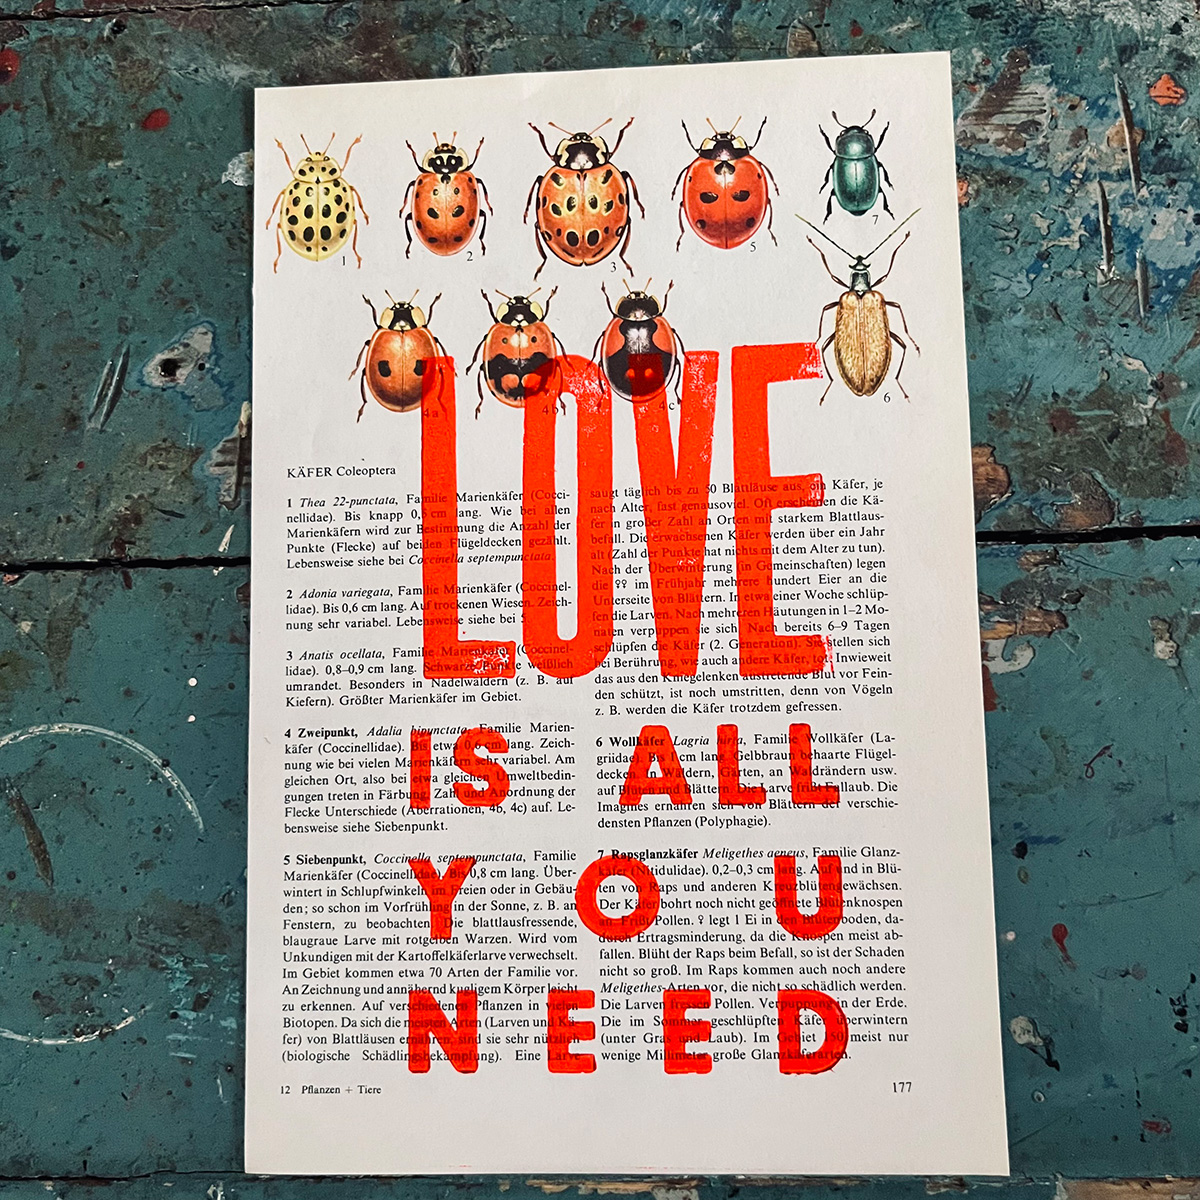 1
2
3
5
7
4a
4b
4c
6
LOVE
IS ALL
YOU
NEED
KÄFER Coleoptera
1 Thea 22-punctata, Familie Marienkäfer (Cocci-
nellidae). Bis knapp 0,5 cm lang. Wie bei allen
Marienkäfern wird zur Bestimmung die Anzahl der
Punkte (Flecke) auf beiden Flügeldecken gezählt.
Lebensweise siehe bei Coccinella septempunctata.
2 Adonia variegata, Familie Marienkäfer (Coccinel-
lidae). Bis 0,6 cm lang. Auf trockenen Wiesen. Zeich-
nung sehr variabel. Lebensweise siehe bei 5
3 Anatis ocellata, Familie Marienkäfer (Coccinel-
lidae). 0,8–0,9 cm lang. Schwarze Punkte weißlich
umrandet. Besonders in Nadelwäldern (z. B. auf
Kiefern). Größter Marienkäfer im Gebiet.
4 Zweipunkt, Adalia bipunctata, Familie Marien-
käfer (Coccinellidae). Bis etwa 0,6 cm lang. Zeich-
nung wie bei vielen Marienkäfern sehr variabel. Am
gleichen Ort, also bei etwa gleichen Umweltbedin-
gungen treten in Färbung, Zahl und Anordnung der
Flecke Unterschiede (Aberrationen, 4b, 4c) auf. Le-
bensweise siehe Siebenpunkt.
5 Siebenpunkt, Coccinella septempunctata, Familie
Marienkäfer (Coccinellidae). Bis 0,8 cm lang. Über-
wintert in Schlupfwinkeln im Freien oder in Gebäu-
den; so schon im Vorfrühling in der Sonne, z. B. an
Fenstern, zu beobachten. Die blattlausfressende,
blaugraue Larve mit rotgelben Warzen. Wird vom
Unkundigen mit der Kartoffelkäferlarve verwechselt.
Im Gebiet kommen etwa 70 Arten der Familie vor.
An Zeichnung und annähernd kugligem Körper leicht
zu erkennen. Auf verschiedenen Pflanzen in vielen
Biotopen. Da sich die meisten Arten (Larven und Kä-
fer) von Blattläusen ernähren, sind sie sehr nützlich
(biologische Schädlingsbekämpfung). Eine Larve
saugt täglich bis zu 50 Blattläuse aus, ein Käfer, je
nach Alter, fast genausoviel. Oft erscheinen die Kä-
fer in großer Zahl an Orten mit starkem Blattlaus-
befall. Die erwachsenen Käfer werden über ein Jahr
alt (Zahl der Punkte hat nichts mit dem Alter zu tun).
Nach der Überwinterung (in Gemeinschaften) legen
die ♀♀ im Frühjahr mehrere hundert Eier an die
Unterseite von Blättern. In etwa einer Woche schlüp-
fen die Larven. Nach mehreren Häutungen in 1–2 Mo-
naten verpuppen sie sich. Nach bereits 6–9 Tagen
schlüpfen die Käfer (2. Generation). Sie stellen sich
bei Berührung, wie auch andere Käfer, tot. Inwieweit
das aus den Kniegelenken austretende Blut vor Fein-
den schützt, ist noch umstritten, denn von Vögeln
z. B. werden die Käfer trotzdem gefressen.
6 Wollkäfer Lagria hirta, Familie Wollkäfer (La-
griidae). Bis 1 cm lang. Gelbbraun behaarte Flügel-
decken. In Wäldern, Gärten, an Waldrändern usw.
auf Blüten und Blättern. Die Larve frißt Fallaub. Die
Imagines ernähren sich von Blättern der verschie-
densten Pflanzen (Polyphagie).
7 Rapsglanzkäfer Meligethes aeneus, Familie Glanz-
käfer (Nitidulidae). 0,2–0,3 cm lang. Auf und in Blü-
ten von Raps und anderen Kreuzblütengewächsen.
Der Käfer bohrt noch nicht geöffnete Blütenknospen
an. Frißt Pollen. ♀ legt 1 Ei in den Blütenboden, da-
durch Ertragsminderung, da die Knospen meist ab-
fallen. Blüht der Raps beim Befall, so ist der Schaden
nicht so groß. Im Raps kommen auch noch andere
Meligethes-Arten vor, die nicht so schädlich werden.
Die Larven fressen Pollen. Verpuppung in der Erde.
Die im Sommer geschlüpften Käfer überwintern
(unter Gras und Laub). Im Gebiet 150 meist nur
wenige Millimeter große Glanzkäferarten.
12 Pflanzen + Tiere
177